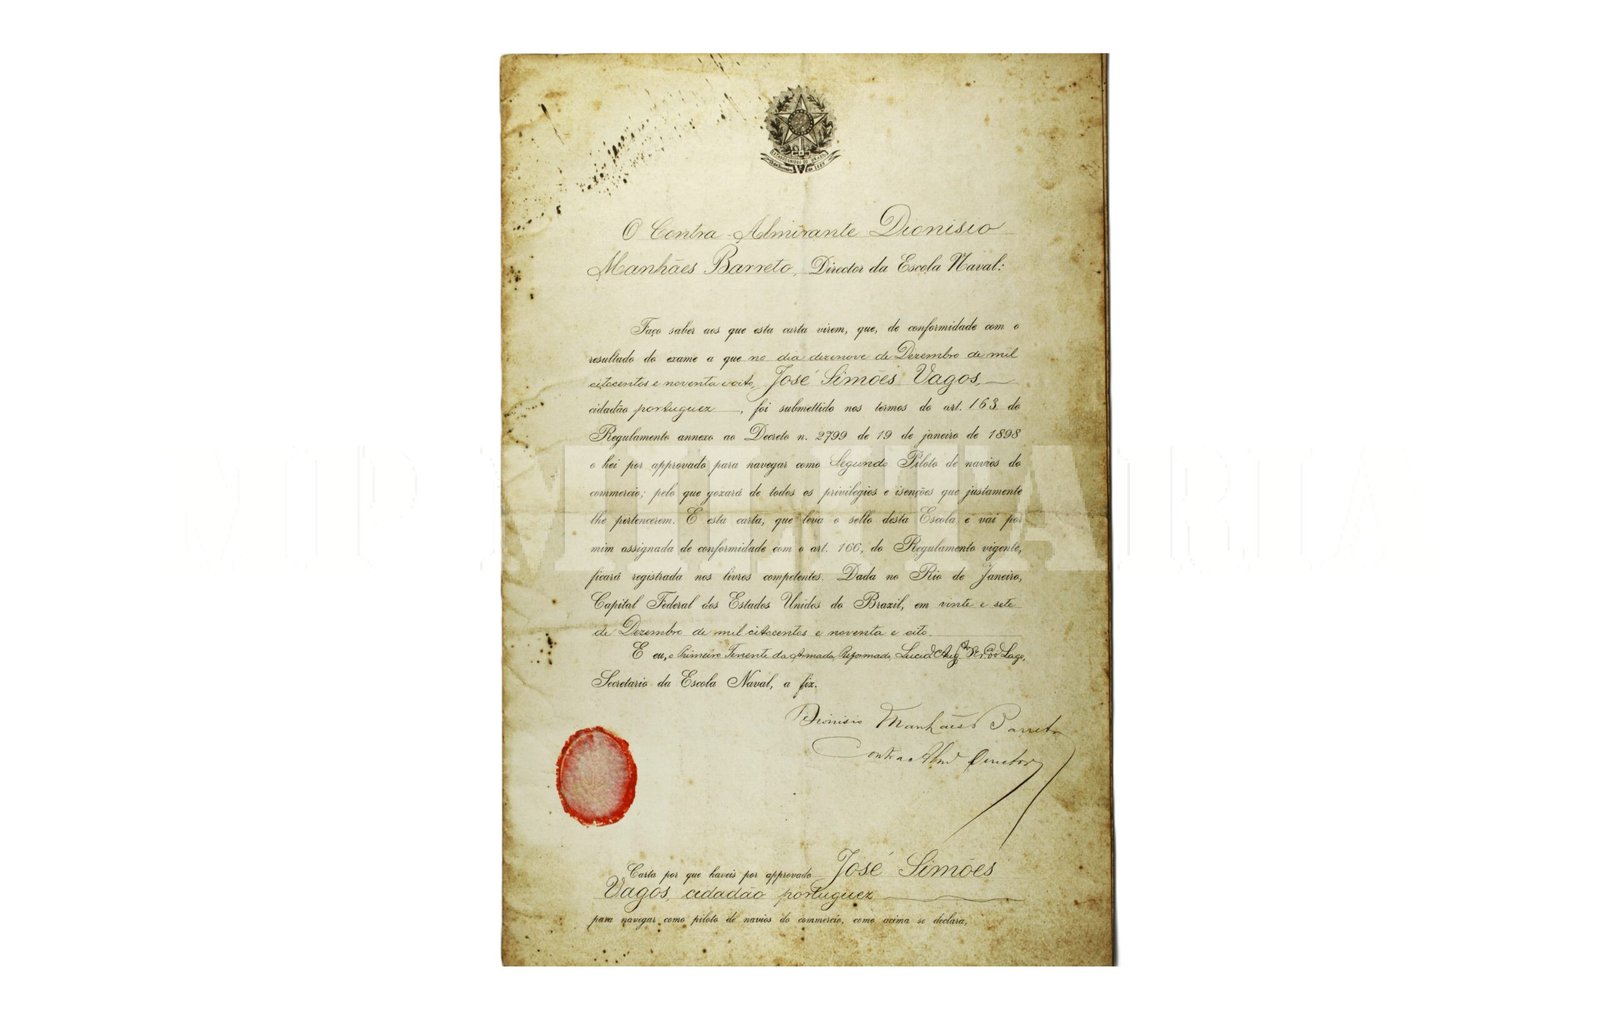 O Contra Almirante Dionisio
Manhães Barreto, Director da Escola Naval:
Faço saber aos que esta carta virem, que, de conformidade com o
resultado do exame a que no dia dezenove de Dezembro de mil
oitocentos e noventa e oito, José Simões Vagos
cidadão portuguez, foi submettido nos termos do art. 163 do
Regulamento annexo ao Decreto n. 2799 de 19 de janeiro de 1898
o hei por approvado para navegar como Segundo Piloto de navios do
commercio; pelo que gozará de todos os privilegios e isenções que justamente
lhe pertencerem. E esta carta, que leva o sello desta Escola e vai por
mim assignada de conformidade com o art. 166, do Regulamento vigente,
ficará registrada nos livros competentes. Dada no Rio de Janeiro,
Capital Federal dos Estados Unidos do Brazil, em vinte e sete
de Dezembro de mil oitocentos e noventa e oito
E eu, o Primeiro Tenente da Armada Reformado, Lage,
Secretario da Escola Naval, a fiz.
Dionisio Manhães Barreto
Contra Almd Director
Carta por que haveis por approvado José Simões
Vagos, cidadão portuguez
para navegar como piloto de navios do commercio, como acima se declara,
MILITARIA